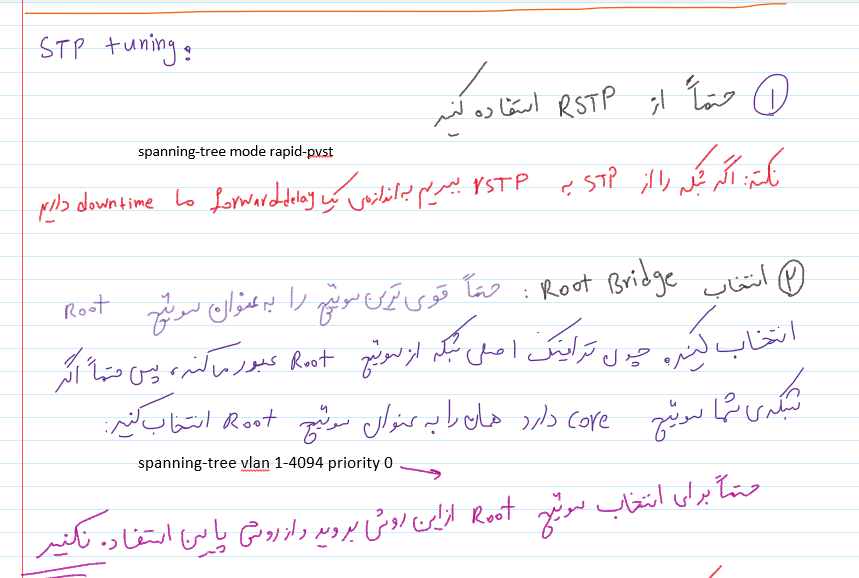 STP tuning:
① حتماً از RSTP استفاده کنید
spanning-tree mode rapid-pvst
نکته: اگر شبکه را از STP به rSTP ببریم به اندازه‌ی یک forward delay ما downtime داریم
② انتخاب Root Bridge : حتماً قوی ترین سوئیچ را به عنوان سوئیچ Root
انتخاب کنید. چون ترافیک اصلی شبکه از سوئیچ Root عبور می‌کند، پس حتماً اگر
شبکه‌ی شما سوئیچ core دارد همان را به عنوان سوئیچ Root انتخاب کنید:
spanning-tree vlan 1-4094 priority 0
حتماً برای انتخاب سوئیچ Root از این روش بروید و از روش پایین استفاده نکنید